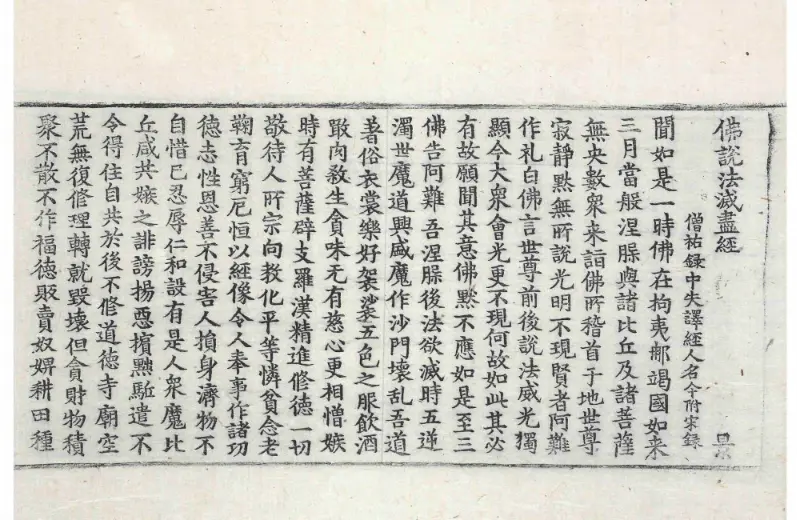 佛說法滅盡經 景
僧祐錄中失譯經人名今附宋錄
聞如是一時佛在拘夷那竭國如来
三月當般涅槃與諸比丘及諸菩薩
無央數衆来詣佛所稽首于地世尊
寂靜黙無所說光明不現賢者阿難
作礼白佛言世尊前後說法威光獨
顯今大衆會光更不現何故如此其必
有故願聞其意佛黙不應如是至三
佛告阿難吾涅槃後法欲滅時五逆
濁世魔道興盛魔作沙門壞乱吾道
著俗衣裳樂好袈裟五色之服飲酒
噉肉殺生貪味无有慈心更相憎嫉
時有菩薩辟支羅漢精進修德一切
敬待人所宗向教化平等憐貧念老
鞠育窮厄恒以經像令人奉事作諸功
德志性恩善不侵害人損身濟物不
自惜己忍辱仁和設有是人衆魔比
丘咸共嫉之誹謗揚惡擯黙駈遣不
令得住自共於後不修道德寺廟空
荒無復修理轉就毀壞但貪財物積
聚不散不作福德販賣奴婢耕田種